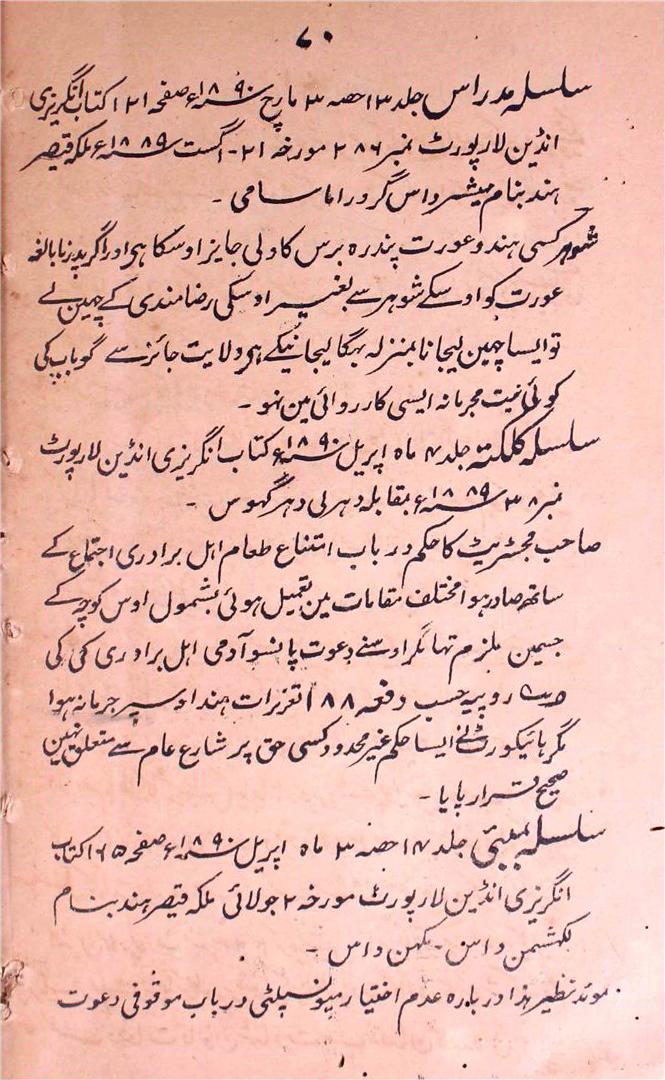 ۷۰
سلسلہ مدراس جلد ۱۳ حصہ ۳ مارچ سنہ ۱۸۹۰ع صفحہ ۱۲۱ کتاب انگریزی
انڈین لا رپورٹ نمبر ۲۸۶ مورخہ ۲۱ - اگست سنہ ۱۸۸۹ع ملکہ قیصر
ہند بنام میشر واس گرورا ماسامی -
شوہر کسی ہندو عورت پندرہ برس کا ولی جایز اوسکا ہی اور اگر پدر نابالغہ
عورت کو اوسکے شوہر سے بغیر اوسکی رضامندی کے چہین لے
تو ایسا چہین لیجانا بمنزلہ بہگا لیجانیکے ہی ولایت جائز سے گو باپ کی
کوئی نیت مجرمانہ ایسی کارروائی مین نہو -
سلسلہ کلکتہ جلد ۷ ماہ اپریل سنہ ۱۸۹۰ع کتاب انگریزی انڈین لا رپورٹ
نمبر ۳۸ سنہ ۱۸۸۹ع بمقابلہ دہرلی دہر گہوس -
صاحب مجسٹریٹ کا حکم در باب امتناع طعام اہل برادری اجتماع کے
ساتھ صادر ہوا مختلف مقامات مین تعمیل ہوئی بشمول اوس کوچہ کے
جسمین ملزم تہا مگر اوسنے دعوت پانسو آدمی اہل برادری کی کی
روپیہ حسب دفعہ ۱۸۸ تعزیرات ہند اوسپر جرمانہ ہوا
مگر ہائیکورٹ نے ایسا حکم غیر محدود کسی حق پر شارع عام سے متعلق نہین
صحیح قرار پایا -
سلسلہ بمبئی جلد ۱۴ حصہ ۳ ماہ اپریل سنہ ۱۸۹۰ع صفحہ ۱۶۵ کتاب
انگریزی انڈین لا رپورٹ مورخہ ۲ جولائی ملکہ قیصر ہند بنام
لکہشمن داس - مکہن داس -
موئد نظیر ہذا دربارہ عدم اختیار میونسپلٹی در باب موقوفی دعوت